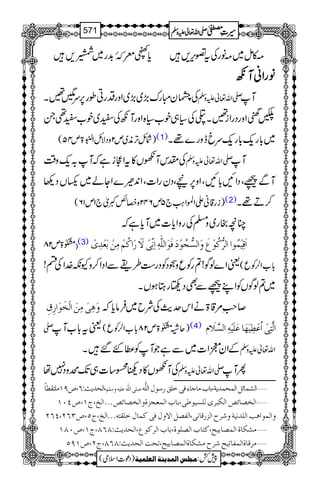 سیرتِ مصطفیٰ صلی اللہ تعالیٰ علیہ وسلم 571
مہ کامل میں نہ مہ نو کی یہ تصویریں ہیں کھنچی معرکۂ بدر میں شمشیریں ہیں
نورانی آنکھ
آپ صلی اللہ تعالیٰ علیہ وسلم کی چشمان مبارک بڑی بڑی اور قدرتی طور پر سرمگیں تھیں۔
پلکیں گھنی اور دراز تھیں۔ پتلی کی سیاہی خوب سیاہ اور آنکھ کی سفیدی خوب سفید تھی جن
میں باریک باریک سرخ ڈورے تھے۔ (1) (شمائل ترمذی ص۲ و دلائل النبوۃ ص۵۴)
آپ صلی اللہ تعالیٰ علیہ وسلم کی مقدس آنکھوں کا یہ اعجاز ہے کہ آپ بہ یک وقت
آگے پیچھے، دائیں بائیں، اوپر نیچے، دن رات، اندھیرے اجالے میں یکساں دیکھا
کرتے تھے۔ (2) (زرقانی علی المواہب ج۵ ص۲۴۶ و خصائص کبریٰ ج۱ ص۶۱)
چنانچہ بخاری و مسلم کی روایات میں آیا ہے کہ
اَقِيْمُوا الرُّكُوْعَ وَ السُّجُوْدَ فَوَاللّٰهِ اِنِّيْ لَاَرَاكُمْ مِنْ بَعْدِيْ (3) (مشکوٰۃ ص۸۲
باب الرکوع) یعنی اے لوگو! تم رکوع و سجود کو درست طریقے سے ادا کرو کیونکہ خدا کی قسم!
میں تم لوگوں کو اپنے پیچھے سے بھی دیکھتا رہتا ہوں۔
صاحب مرقاۃ نے اس حدیث کی شرح میں فرمایا کہ وَهِيَ مِنَ الْخَوَارِقِ
الَّتِيْ اُعْطِيَهَا عَلَيْهِ السَّلَام (4) (حاشیہ مشکوٰۃ ص۸۲ باب الرکوع) یعنی یہ بات آپ صلی
اللہ تعالیٰ علیہ وسلم کے ان معجزات میں سے ہے جو آپ کو عطا کئے گئے ہیں۔
پھر آپ صلی اللہ تعالیٰ علیہ وسلم کی آنکھوں کا دیکھنا محسوسات ہی تک محدود نہیں تھا
الشمائل المحمدية، باب ماجاء في خلق رسول اللّٰه صلى الله عليه وسلم، الحديث: ٦، ص ١٩ ملتقطاً
الخصائص الكبرى للسيوطي، باب المعجزة والخصائص...الخ، ج ١، ص ١٠٤
و المواهب اللدنية وشرح الزرقاني، الفصل الاول في كمال خلقته...الخ، ج ٥، ص ٢٦٣، ٢٦٤
مشكاة المصابيح، كتاب الصلوة، باب الركوع، الحديث: ٨٦٨، ج ١، ص ١٨٠
مرقاة المفاتيح شرح مشكاة المصابيح، تحت الحديث: ٨٦٨، ج ٢، ص ٥٩١
پیش کش: مجلس المدینة العلمیة (دعوتِ اسلامی)